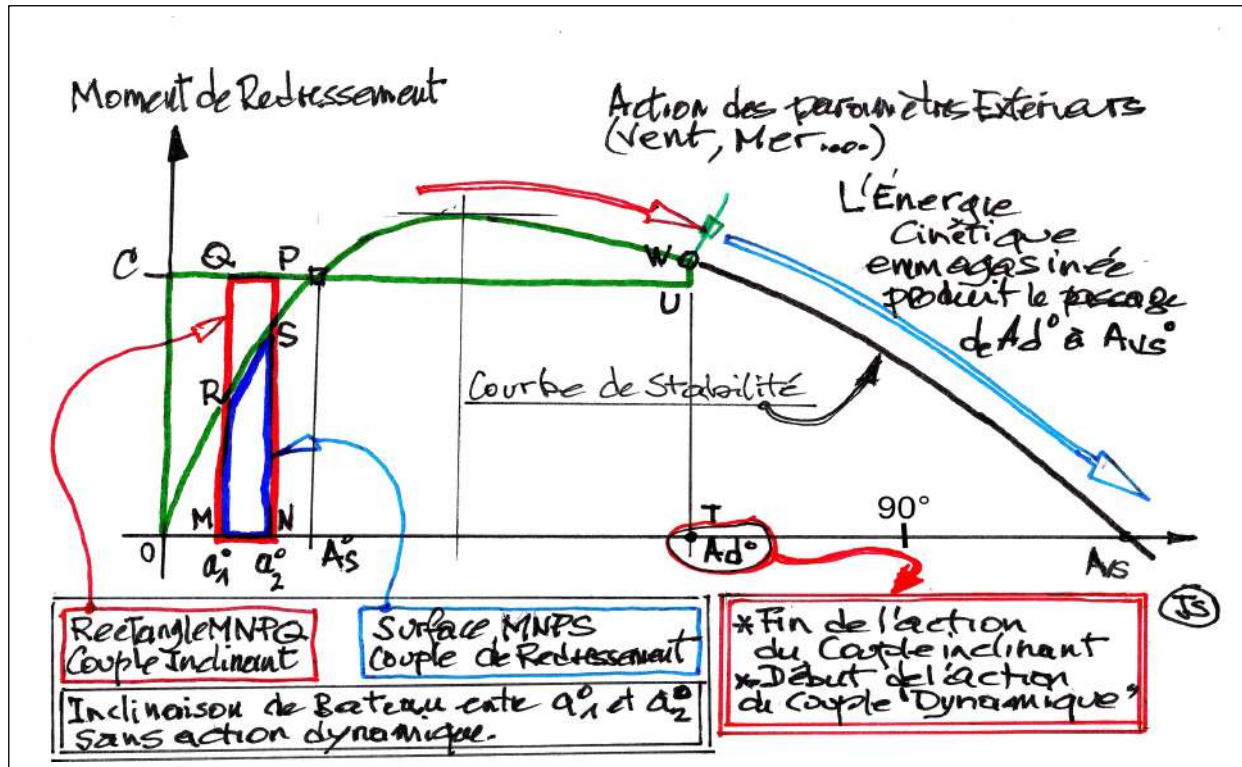 Moment de Redressement
Action des paramètres Extérieurs
(Vent, Mer....)
L'Énergie
Cinétique
emmagasinée
produit le passage
de Ad° à Avs°
C
Q
P
W
U
S
R
Courbe de Stabilité
M
N
T
90°
O
a°1
a°2
A°s
Ad°
Avs
Js
Rectangle MNPQ
Couple Inclinant
Surface MNPS
Couple de Redressement
Inclinaison de Bateau entre a°1 et a°2
sans action dynamique.
*Fin de l'action
du Couple inclinant
*Début de l'action
du Couple "Dynamique"